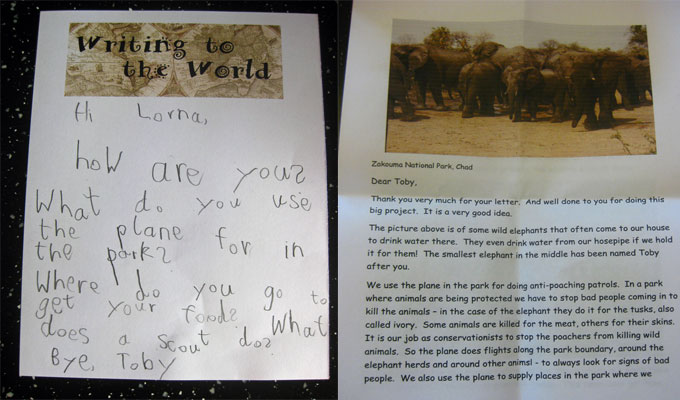 Writing to
the World
Hi Lorna,
how are you?
What do you use
the plane for in
the park?
Where do you go to
get your food? What
does a scout do?
Bye, Toby
Zakouma National Park, Chad
Dear Toby,
Thank you very much for your letter. And well done to you for doing this
big project. It is a very good idea.
The picture above is of some wild elephants that often come to our house
to drink water there. They even drink water from our hosepipe if we hold
it for them! The smallest elephant in the middle has been named Toby
after you.
We use the plane in the park for doing anti-poaching patrols. In a park
where animals are being protected we have to stop bad people coming in to
kill the animals – in the case of the elephant they do it for the tusks, also
called ivory. Some animals are killed for the meat, others for their skins.
It is our job as conservationists to stop the poachers from killing wild
animals. So the plane does flights along the park boundary, around the
elephant herds and around other animsl - to always look for signs of bad
people. We also use the plane to supply places in the park where we